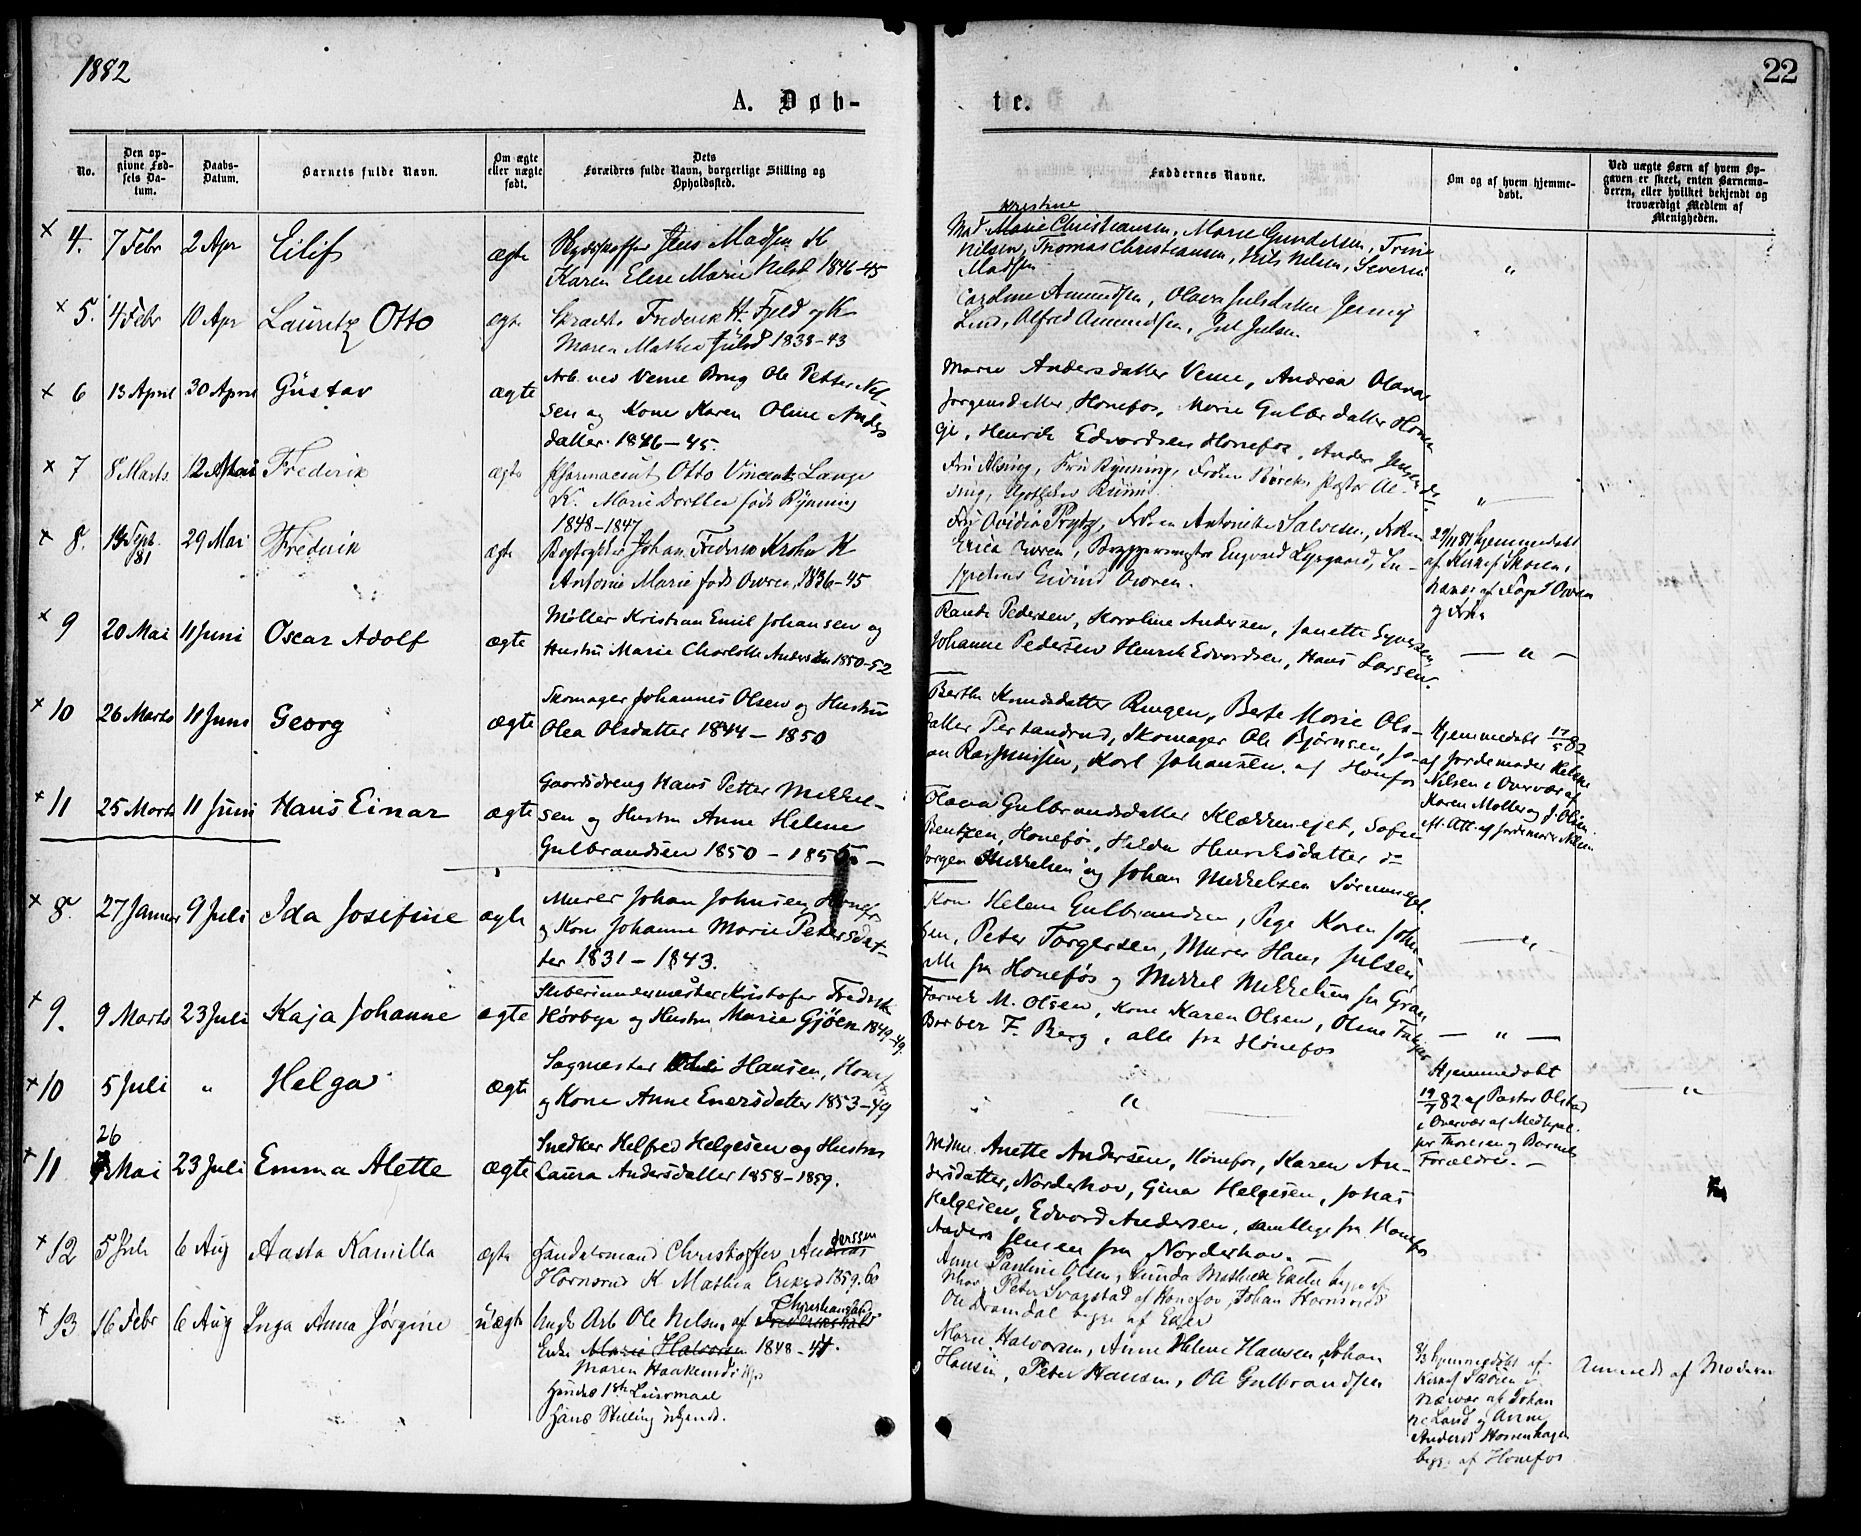 1882
22
A. Døb-
te.
No.
Den op-
givne Fød-
sels Da-
tum.
Daabs-
Datum.
Barnets fulde Navn.
Om ægte
eller uægte
født.
Dets
Forældres fulde Navn, borgerlige Stilling og
Opholdssted.
Faddernes Navne.
Om og af hvem hjemme-
døbt.
Ved uægte Børn af hvem Op-
gaven er skeet, enten Barnemo-
deren, eller hvilket bekjendt og
troværdigt Medlem af
Menigheden.
× 4. 7 Febr 2 Apr Eilif ægte
Jens Madsen K
Karen Elise Marie Nelsd 1846-45
Kristine
Mad Marie Christiansen, Marie Gundersen, Trine
Nilsen, Thomas Christiansen, Nils Nilsen, Severin
Madsen
"
× 5. 4 Febr 10 Apr Lauritz Otto ægte
Frederik H. Fjeld og K
Maren Mathea Julsd 1838-43
Caroline Amundsen, Olava Julsdatter Jenny
Lund, Alfred Amundsen, Jul Julsen
× 6 13 April 30 April Gustav ægte
Arb. ved Veme Brug Ole Petter Nel-
sen og Kone Karen Oline Anders
datter. 1846-45.
Marie Andersdatter Veme, Andrea Olava
Jørgensdatter, Hønefos, Marie Gulbrdatter Honen
ge, Henrik Edvardsen Hønefos, Anders Jensen
× 7 8 Marts 12 Mai Frederik ægte
Pharmaceut Otto Vincent Lange
K. Marie Dorthea født Rynning
1848-1847
Fru Alsing, Fru Rynning, Frøken Børck, Pastor Al-
sing, Apotheker Rynning
"
× 8. 13 Sept. 81 29 Mai Frederik ægte
Bogtrykker Johan Frederik Krohn K
Antonie Marie født Owren, 1836-45
Fru Ovidia Prytz, Frøken Antonette Salvesen, Frøken
Erica Owren, Bryggermester Engvald Lysgaard, In-
spektør Eivind Owren.
29/11 81 hjemmedøbt
af Kirkes. Skøien i
nærvær af Foged Owren
og Frøken
× 9 20 Mai 11 Juni Oscar Adolf ægte
Møller Kristian Emil Johansen og
Hustru Marie Charlotte Andersen 1850-52
Randi Pedersen, Karoline Andersen, Janette Syversen
Johanne Pedersen Henrik Edvardsen, Hans Larsen.
— " —
× 10 26 Marts 11 Juni Georg ægte
Skomager Johannes Olsen og Hustru
Olea Olsdatter 1844 - 1850
Berthe Knudsdatter Ringen, Berte Marie Ols-
datter Pertandrud, Skomager Ole Bjørnsen, Jo-
an Rasmussen, Karl Johansen. af Hønefos
Hjemmedøbt 17/5 82
af Jordemoder Helene
Nilsen i Overvær af
Karen Møller og J. Olsen.
Att. af Jordemoder Nilsen
× 11 25 Marts 11 Juni Hans Einar ægte
Gaardsdreng Hans Petter Mikkel-
sen og Hustru Anne Helene
Gulbrandsen 1850 - 1855 -
Olava Gulbrandsdatter Klækkeneiet, Sofie
Bentzen, Hønefos, Helda Henriksdatter do
Jørgen Mikkelsen og Johan Mikkelsen
× 8. 27 Januar 9 Juli Ida Josefine ægte
Murer Johan Johnsen, Honefos
og Kone Johanne Marie Petersdat-
ter 1831 - 1843.
Kone Helene Gulbrandsen, Pige Karen John
sen, Peter Torgersen, Murer Hans Julsen
alle fra Honefos og Mikkel Mikkelsen fra Gran
— " —
× 9. 9 Marts 23 Juli Kaja Johanne ægte
Kristofer Fredrik
Hørbye og Hustru Marie Gjøen 1849-49.
Farver M. Olsen, Kone Karen Olsen, Oline
Barber F. Berg, alle fra Hønefos
— " —
× 10 5 Juli " Helga ægte
Sagmester Hansen, Honefos
og Kone Anne Enersdatter 1853-49
"
Hjemmedøbt
19/7 82 af Pastor Olstad
i Overvær af Medhjæl-
per Thoresen og Barnets
Forældre. —
"
× 11 26 Mai 23 Juli Emma Alette ægte
Snedker Helfred Helgesen og Hustru
Laura Andersdatter 1858 - 1859.
Anette Andersen, Hønefos, Karen An-
dersdatter, Norderhov, Gina Helgesen, Jonas
Helgesen, Edvard Andersen, samtlige fra Honefos
Anders Jensen fra Norderhov. —
× 12 5 Juli 6 Aug Aasta Kamilla ægte
Handelsmand Christoffer Anderssen
Hornsrud K Mathea Eriksd 1859. 60
Anne Pauline Olsen, Gunda Mathea begge af
Nhov, Peter Svarstad af Honefos, Johan Hornsrud
Ole Dramdal begge af Eker
× 13 16 Febr 6 Aug Inga Anna Jørgine uægte
Ungk. Arb Ole Nelsen af Christiansand Frederikshald
Enke Marie Halvorsen 1848-44.
Maren Haakensd
Hendes 1ste Leiermaal
Hans Stilling ubekjendt.
Marie Halvorsen, Anne Helene Hansen, Johan
Hansen, Peter Hansen, Ole Gulbrandsen
8/3 hjemmedøbt af
Kirkes. Skøien i
nærvær af Johan
ne Lund og Anne
Andersd Hønenhagen
begge af Honefos
Anmeldt af Moderen